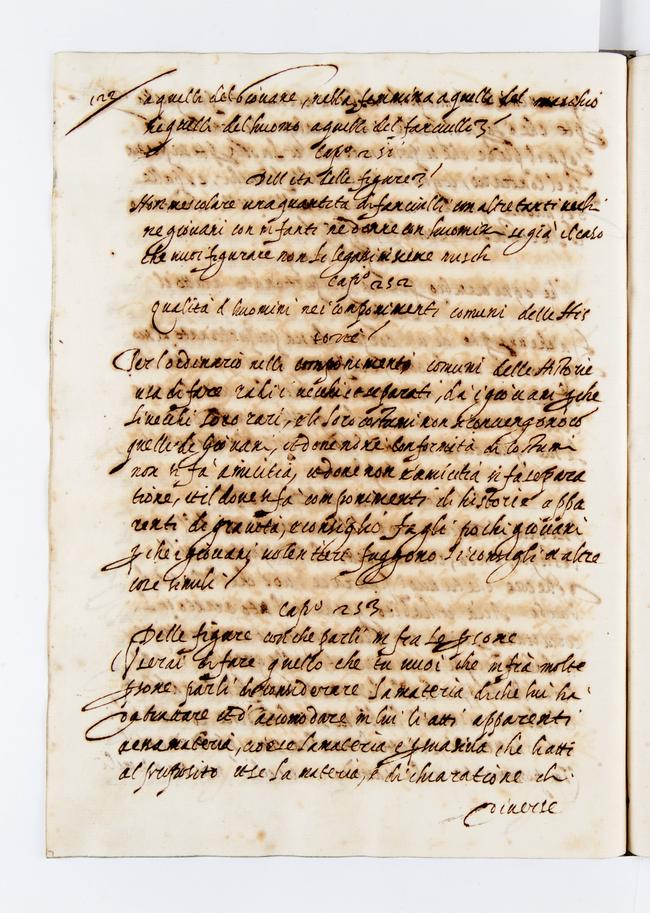 122 a quelli del Giovane, nella femmina a quelli del maschio
ne quelli del huomo a quelli del fanciullo
Cap.º 251
Dell età delle figure
Non mescolare una quantita di fanciulli con altre tanti vechi
ne giovani con infanti ne donne con huomini se già il caso
che vuoi figurare non li legasi insieme
Cap.º 252
Qualità d huomini nei componimenti comuni delle His
torie
Per l'ordinario nelli componimenti comuni delle Historie
usa di fare radi i vecchi e separati, da i giovani, p che
li vecchi sono rari, e li loro costumi non si convengono co
quelli di Giovani, et dove non è conformità di costumi
non si fa amicitia, et dove non è amicitia si fa separa
tione, et il dove si fa componimenti di historie appa
renti di gravità, e consiglio fa gli pochi giovani
p che i giovani volentieri fuggono li consigli et altre
cose simili
Cap.º 253
Delle figure con che parli in fra le psone
Userai di fare quello che tu vuoi che in fra molte
psone parli di considerare la materia di che lui ha
da trattare et d' accomodare in lui li atti apparenti
a essa materia, cioe se la materia è p̱suasiva che li atti
al proposito et se la materia, è di chiaratione di
diverse